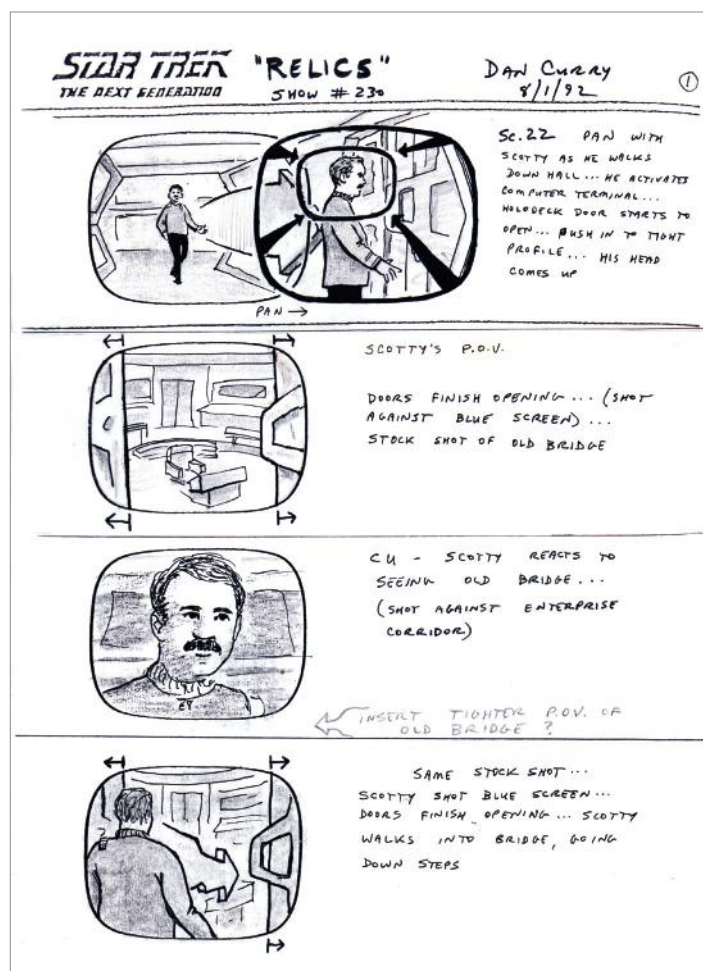 STAR TREK
THE NEXT GENERATION
"RELICS"
SHOW # 230
DAN CURRY
8/1/92
1
SC. 22 PAN WITH
SCOTTY AS HE WALKS
DOWN HALL... HE ACTIVATES
COMPUTER TERMINAL...
HOLODECK DOOR STARTS TO
OPEN... PUSH IN TO TIGHT
PROFILE... HIS HEAD
COMES UP
PAN →
SCOTTY'S P.O.V.
DOORS FINISH OPENING... (SHOT
AGAINST BLUE SCREEN)...
STOCK SHOT OF OLD BRIDGE
CU - SCOTTY REACTS TO
SEEING OLD BRIDGE...
(SHOT AGAINST ENTERPRISE
CORRIDOR)
INSERT TIGHTER P.O.V. OF
OLD BRIDGE ?
SAME STOCK SHOT...
SCOTTY SHOT BLUE SCREEN...
DOORS FINISH OPENING... SCOTTY
WALKS INTO BRIDGE, GOING
DOWN STEPS